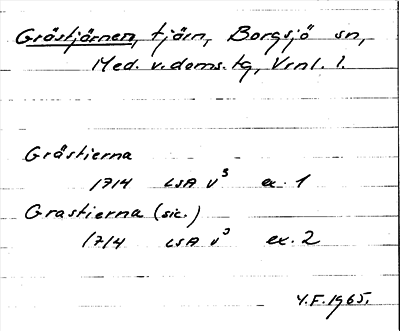 Gråstjärnen, tjärn, Borgsjö sn,
Med. v. doms. tg, Vrnl. l.
Gråstierna
1714 LSA V³ ex. 1
Grastierna (sic.)
1714 LSA V³ ex. 2
Y.F. 1965.